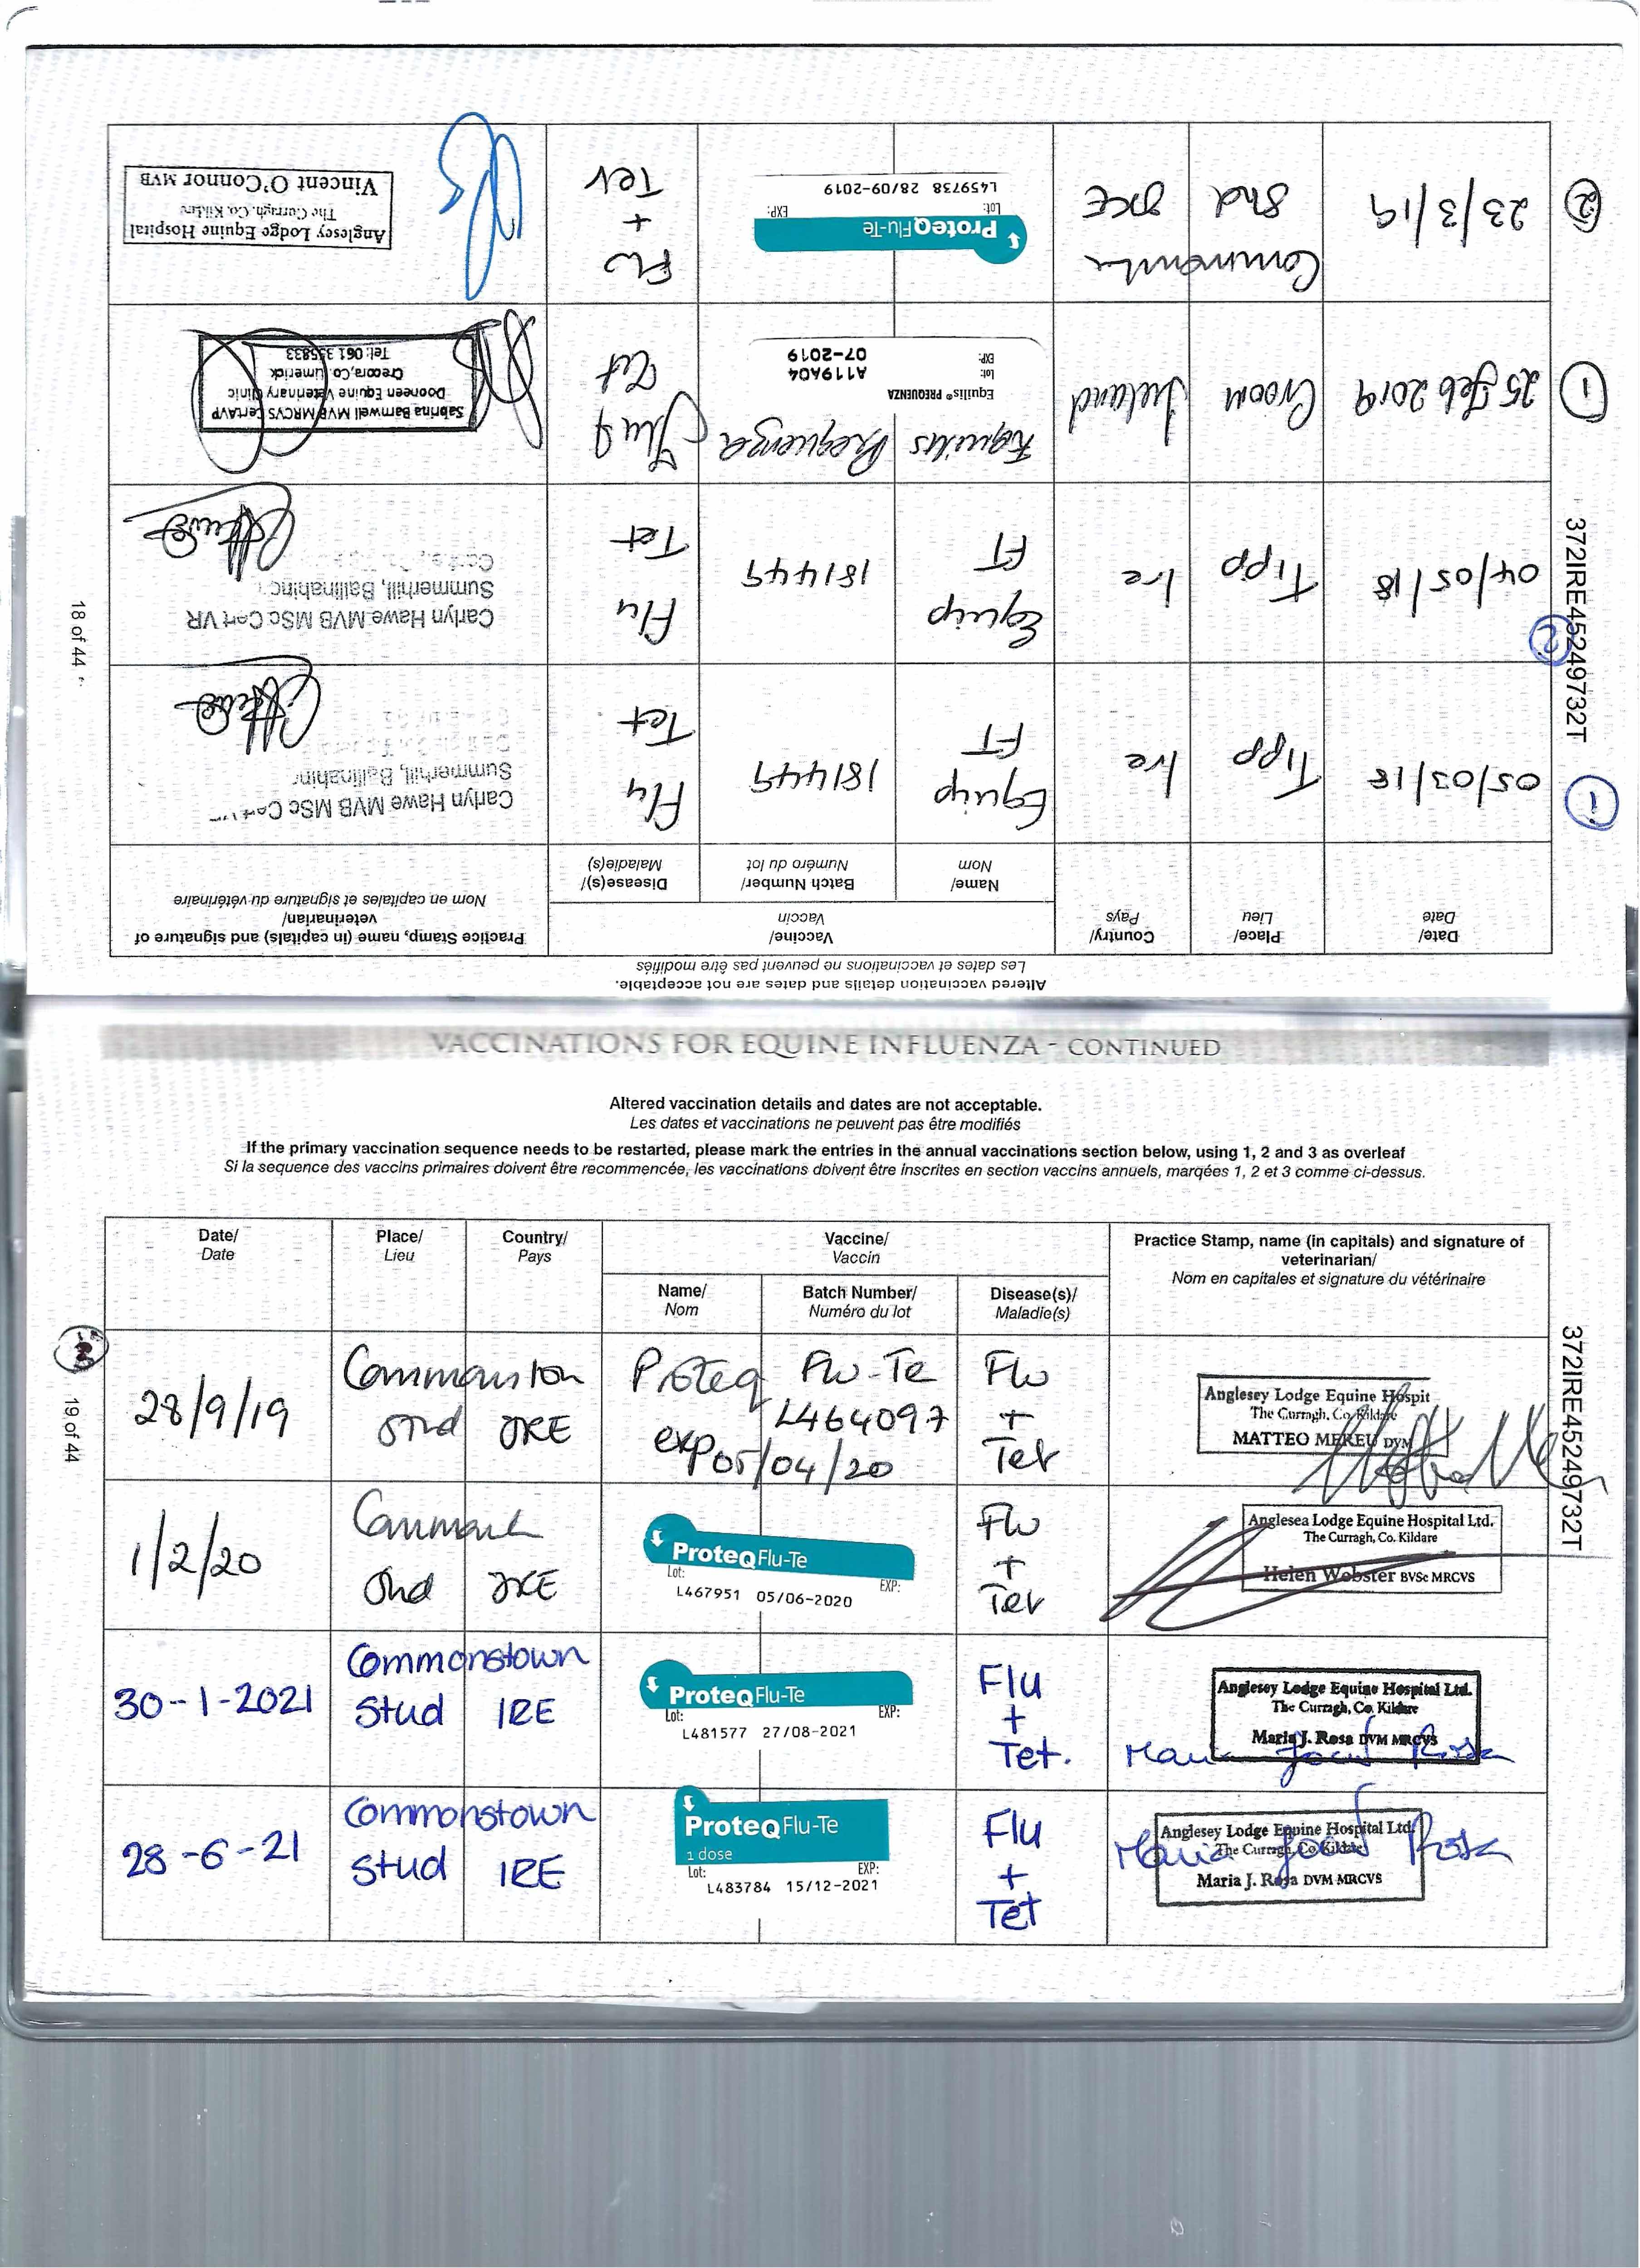 Altered vaccination details and dates are not acceptable.
Les dates et vaccinations ne peuvent pas être modifiés
Date/
Date
Place/
Lieu
Country/
Pays
Vaccine/
Vaccin
Practice Stamp, name (in capitals) and signature of
veterinarian/
Nom en capitales et signature du vétérinaire
Name/
Nom
Batch Number/
Numéro du lot
Disease(s)/
Maladie(s)
1
05/03/18
Tipp
Ire
Equip
FT
181449
Flu
Tet
Carlyn Hawe MVB MSc Cert
Summerhill, Ballinahinc
2
04/05/18
Tipp
Ire
Equip
FT
181449
Flu
Tet
Carlyn Hawe MVB MSc Cert VR
Summerhill, Ballinahinc
1
25 Feb 2019
Croom
Ireland
Equilis Prequenza
Equilis® PREQUENZA
Lot: A119A04
EXP: 07-2019
Flu &
Tet
Sabrina Barnwell MVB MRCVS CertAVP
Dooneen Equine Veterinary Clinic
Crecora, Co. Limerick
Tel: 061 355833
2
23/3/19
Stud
IRE
ProteqFlu-Te
Lot: EXP:
L459738 28/09-2019
Flu
+
Tet
Anglesey Lodge Equine Hospital
The Curragh, Co. Kildare
Vincent O'Connor MVB
18 of 44
372IRE45249732T
VACCINATIONS FOR EQUINE INFLUENZA - CONTINUED
Altered vaccination details and dates are not acceptable.
Les dates et vaccinations ne peuvent pas être modifiés
If the primary vaccination sequence needs to be restarted, please mark the entries in the annual vaccinations section below, using 1, 2 and 3 as overleaf
Si la sequence des vaccins primaires doivent être recommencée, les vaccinations doivent être inscrites en section vaccins annuels, marqées 1, 2 et 3 comme ci-dessus.
Date/
Date
Place/
Lieu
Country/
Pays
Vaccine/
Vaccin
Practice Stamp, name (in capitals) and signature of
veterinarian/
Nom en capitales et signature du vétérinaire
Name/
Nom
Batch Number/
Numéro du lot
Disease(s)/
Maladie(s)
28/9/19
Stud
IRE
Proteq Flu-Te
L464097
exp 05/04/20
Flu
+
Tet
Anglesey Lodge Equine Hospit
The Curragh, Co. Kildare
MATTEO MEREU DVM
1/2/20
Stud
IRE
ProteqFlu-Te
Lot: EXP:
L467951 05/06-2020
Flu
+
Tet
Anglesea Lodge Equine Hospital Ltd.
The Curragh, Co. Kildare
Helen Webster BVSc MRCVS
30-1-2021
Commonstown
Stud
IRE
ProteqFlu-Te
Lot: EXP:
L481577 27/08-2021
Flu
+
Tet.
Anglesey Lodge Equine Hospital Ltd.
The Curragh, Co. Kildare
Maria J. Rosa DVM MRCVS
28-6-21
Commonstown
Stud
IRE
ProteqFlu-Te
1 dose
Lot: EXP:
L483784 15/12-2021
Flu
+
Tet
Anglesey Lodge Equine Hospital Ltd
The Curragh, Co Kildare
Maria J. Rosa DVM MRCVS
19 of 44
372IRE45249732T